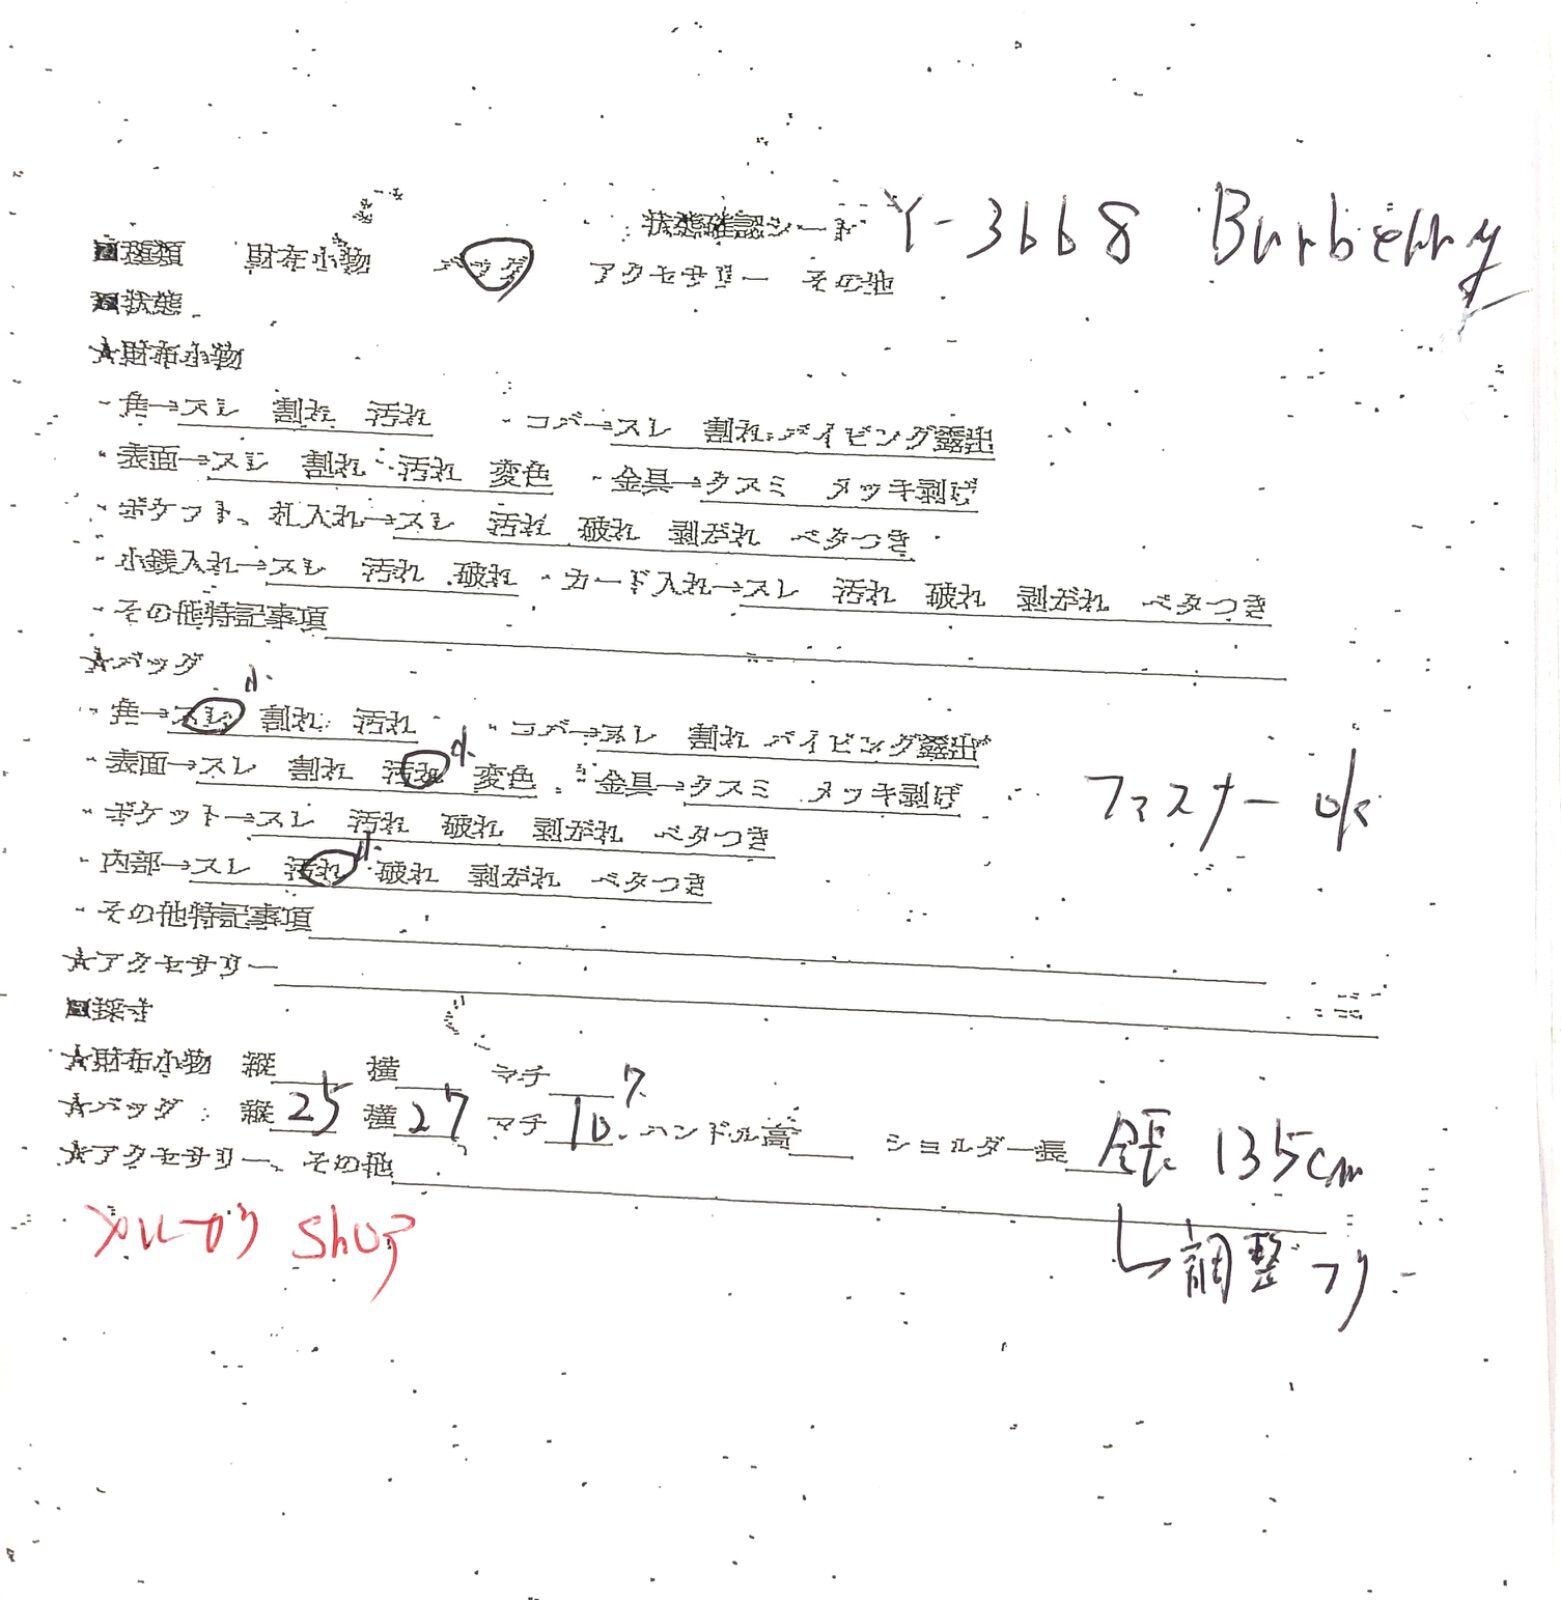 状態確認シート Y-3668 Burberry
■種類 財布小物 バッグ アクセサリー その他
■状態
★財布小物
・角→スレ 割れ 汚れ ・コバ→スレ 割れ パイピング露出
・表面→スレ 割れ 汚れ 変色 ・金具→クスミ メッキ剥げ
・ポケット、札入れ→スレ 汚れ 破れ 剥がれ ベタつき
・小銭入れ→スレ 汚れ 破れ ・カード入れ→スレ 汚れ 破れ 剥がれ ベタつき
・その他特記事項
★バッグ
小
・角→スレ 割れ 汚れ ・コバ→スレ 割れ パイピング露出
・表面→スレ 割れ 汚れ 小 変色 ・金具→クスミ メッキ剥げ ファスナー ok
・ポケット→スレ 汚れ 破れ 剥がれ ベタつき
・内部→スレ 汚れ 小 破れ 剥がれ ベタつき
・その他特記事項
★アクセサリー
■採寸
★財布小物 縦 横 マチ
★バッグ 縦 25 横 27 マチ 10.7 ハンドル高 ショルダー長 全長 135cm
★アクセサリー、その他
調整アリ
メルカリ shop